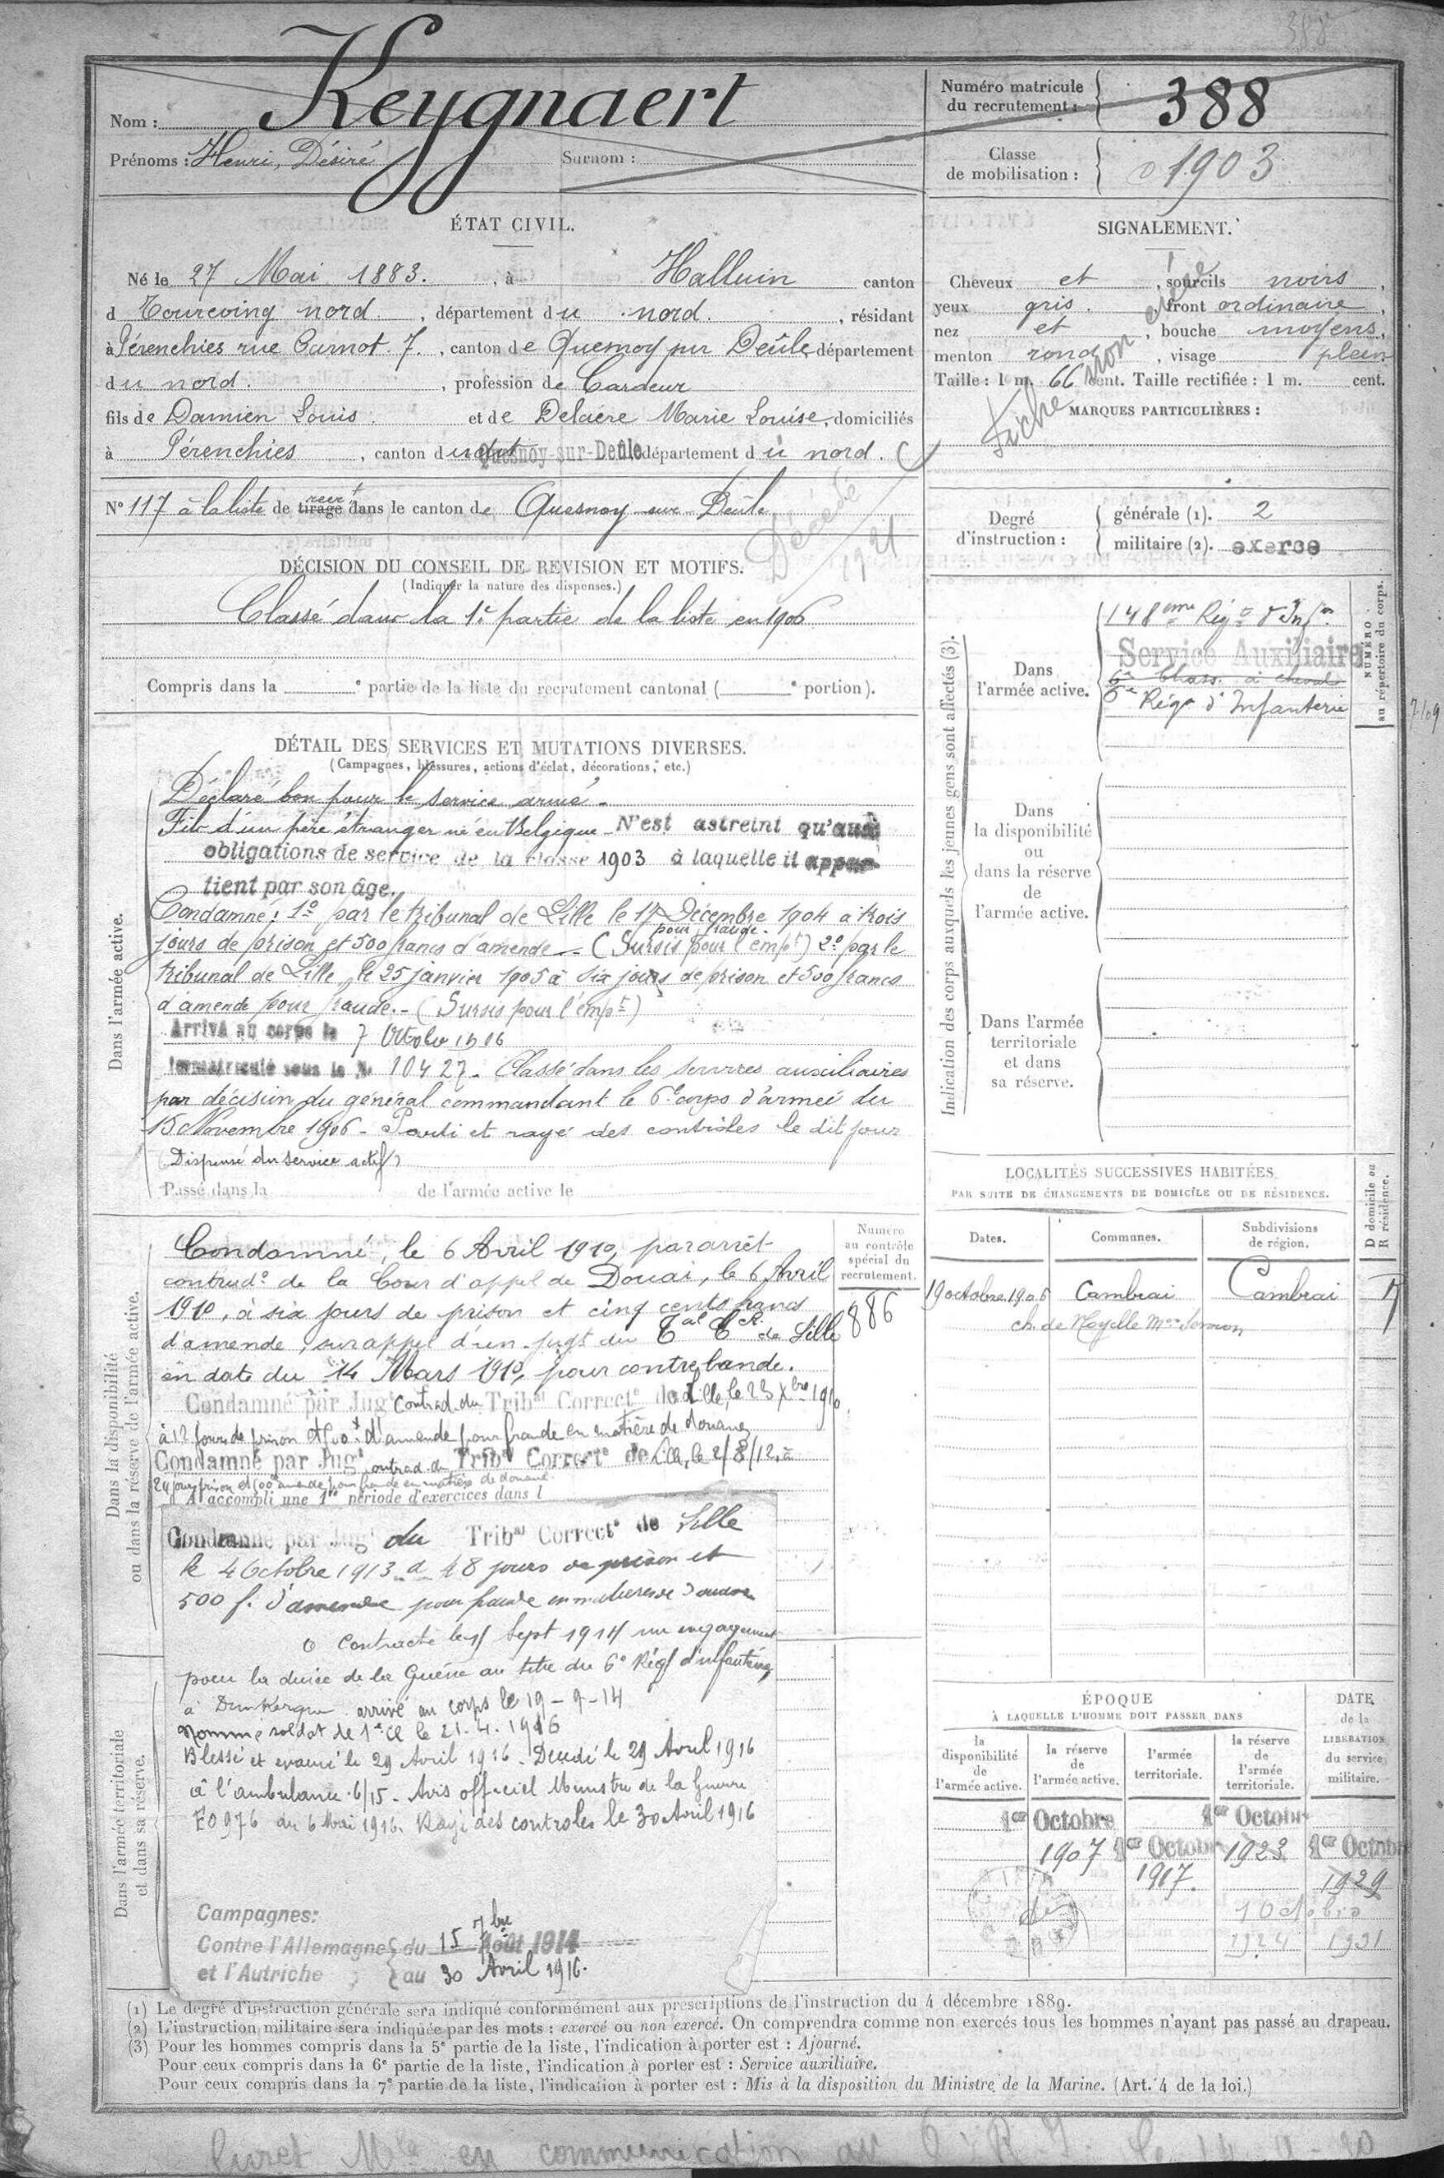 388
Nom : Keygnaert
Prénoms : Henri, Désiré
Surnom :
Numéro matricule
du recrutement : 388
Classe
de mobilisation : 1903
ÉTAT CIVIL.
Né le 27 Mai 1883. , à Halluin canton
d Tourcoing nord. , département du nord. , résidant
à Pérenchies rue Carnot. 7. , canton de Quesnoy sur Deûle, département
du nord. , profession de Cardeur
fils de Damien Louis. et de Delaere Marie Louise, domiciliés
à Pérenchies , canton du dit Quesnoy-sur-Deûle département du nord.
N° 117 à la liste de tirage rect dans le canton de Quesnoy sur Deûle
Décédé
1921
DÉCISION DU CONSEIL DE REVISION ET MOTIFS.
(Indiquer la nature des dispenses.)
Classé dans la 1e partie de la liste en 1906
Compris dans la e partie de la liste du recrutement cantonal ( e portion).
SIGNALEMENT.
Cheveux et , sourcils noirs ,
yeux gris. , front ordinaire ,
nez et , bouche moyens,
menton rond , visage plein
Taille : 1 m. 66 cent. Taille rectifiée : 1 m. cent.
MARQUES PARTICULIÈRES :
Fiche non créée
Degré
d'instruction :
générale (1). 2
militaire (2). exercé
DÉTAIL DES SERVICES ET MUTATIONS DIVERSES.
(Campagnes, blessures, actions d'éclat, décorations, etc.)
Dans l'armée active.
Déclaré bon pour le service armé.
Fils d'un père étranger né en Belgique. N'est astreint qu'aux
obligations de service de la classe 1903 à laquelle il appar-
tient par son âge.
Condamné : 1° par le tribunal de Lille le 17 Décembre 1904 à trois
jours de prison et 500 francs d'amende pour fraude. - (Sursis pour l'empt) 2° par le
tribunal de Lille, le 25 janvier 1905 à six jours de prison et 500 francs
d'amende pour fraude. - (Sursis pour l'empt)
Arrivé au corps le 7 Octobre 1906
Immatriculé sous le N° 10427. Classé dans les services auxiliaires
par décision du général commandant le 6e corps d'armée du
15 Novembre 1906 - Parti et rayé des contrôles le dit jour
(Dispensé du service actif)
Passé dans la de l'armée active le
Indication des corps auxquels les jeunes gens sont affectés (3).
NUMÉRO
au répertoire du corps.
Dans
l'armée active.
148eme Régt d'Infie
Service Auxiliaire
6e Chass. à cheval
6e Régt d'Infanterie
Dans
la disponibilité
ou
dans la réserve
de
l'armée active.
Dans l'armée
territoriale
et dans
sa réserve.
Dans la disponibilité
ou dans la réserve de l'armée active.
Condamné, le 6 Avril 1910, par arrêt
contrad° de la Cour d'appel de Douai, le 6 Avril
1910, à six jours de prison et cinq cents francs
d'amende, sur appel d'un jugt du Tal Cel de Lille
en date du 14 Mars 1910, pour contrebande.
Condamné par Jugt contrad. du Tribal Correctl de Lille, le 23 Xbre 1910
à 12 jours de prison et 500f d'amende pour fraude en matière de douanes
Condamné par Jugt contrad. du Tribal Correctl de Lille, le 2/8/12, à
24 jours prison et 500 amende pour fraude en matière de douane.
A accompli une 1re période d'exercices dans l
Condamné par Jugt du Tribal Correctl de Lille
le 4 Octobre 1913 à 48 jours de prison et
500 f. d'amende pour fraude en matière de douane
Contracte le Sept 1914 un engagement
pour la durée de la Guerre au titre du 6e Régt d'infanterie
à Dunkerque arrivé au corps le 19-9-14
Nommé soldat de 1re Cl le 21.4.1916
Blessé et évacué le 29 Avril 1916. Décédé le 29 Avril 1916
à l'ambulance 6/15. Avis officiel Ministre de la Guerre
E0976 du 6 Mai 1916. Rayé des contrôles le 30 Avril 1916
Dans l'armée territoriale
et dans sa réserve.
Campagnes:
Contre l'Allemagne
et l'Autriche
du 15 7bre Août 1914
au 30 Avril 1916.
Numéro
au contrôle
spécial du
recrutement.
886
LOCALITÉS SUCCESSIVES HABITÉES
PAR SUITE DE CHANGEMENTS DE DOMICILE OU DE RÉSIDENCE.
Dates. Communes. Subdivisions
de région.
D domicile ou
R résidence.
19 octobre 1906 Cambrai Cambrai
ÉPOQUE
À LAQUELLE L'HOMME DOIT PASSER DANS
la
disponibilité
de
l'armée active.
la réserve
de
l'armée active.
l'armée
territoriale.
la réserve
de
l'armée
territoriale.
DATE
de la
LIBÉRATION
du service
militaire.
1er Octobre 1907
1er Octobre 1917.
1er Octobre 1923
1er Octobre 1929
1 Octobre
1924 1931
(1) Le degré d'instruction générale sera indiqué conformément aux prescriptions de l'instruction du 4 décembre 1889.
(2) L'instruction militaire sera indiquée par les mots : exercé ou non exercé. On comprendra comme non exercés tous les hommes n'ayant pas passé au drapeau.
(3) Pour les hommes compris dans la 5e partie de la liste, l'indication à porter est : Ajourné.
Pour ceux compris dans la 6e partie de la liste, l'indication à porter est : Service auxiliaire.
Pour ceux compris dans la 7e partie de la liste, l'indication à porter est : Mis à la disposition du Ministre de la Marine. (Art. 4 de la loi.)
livret Mle en communication au